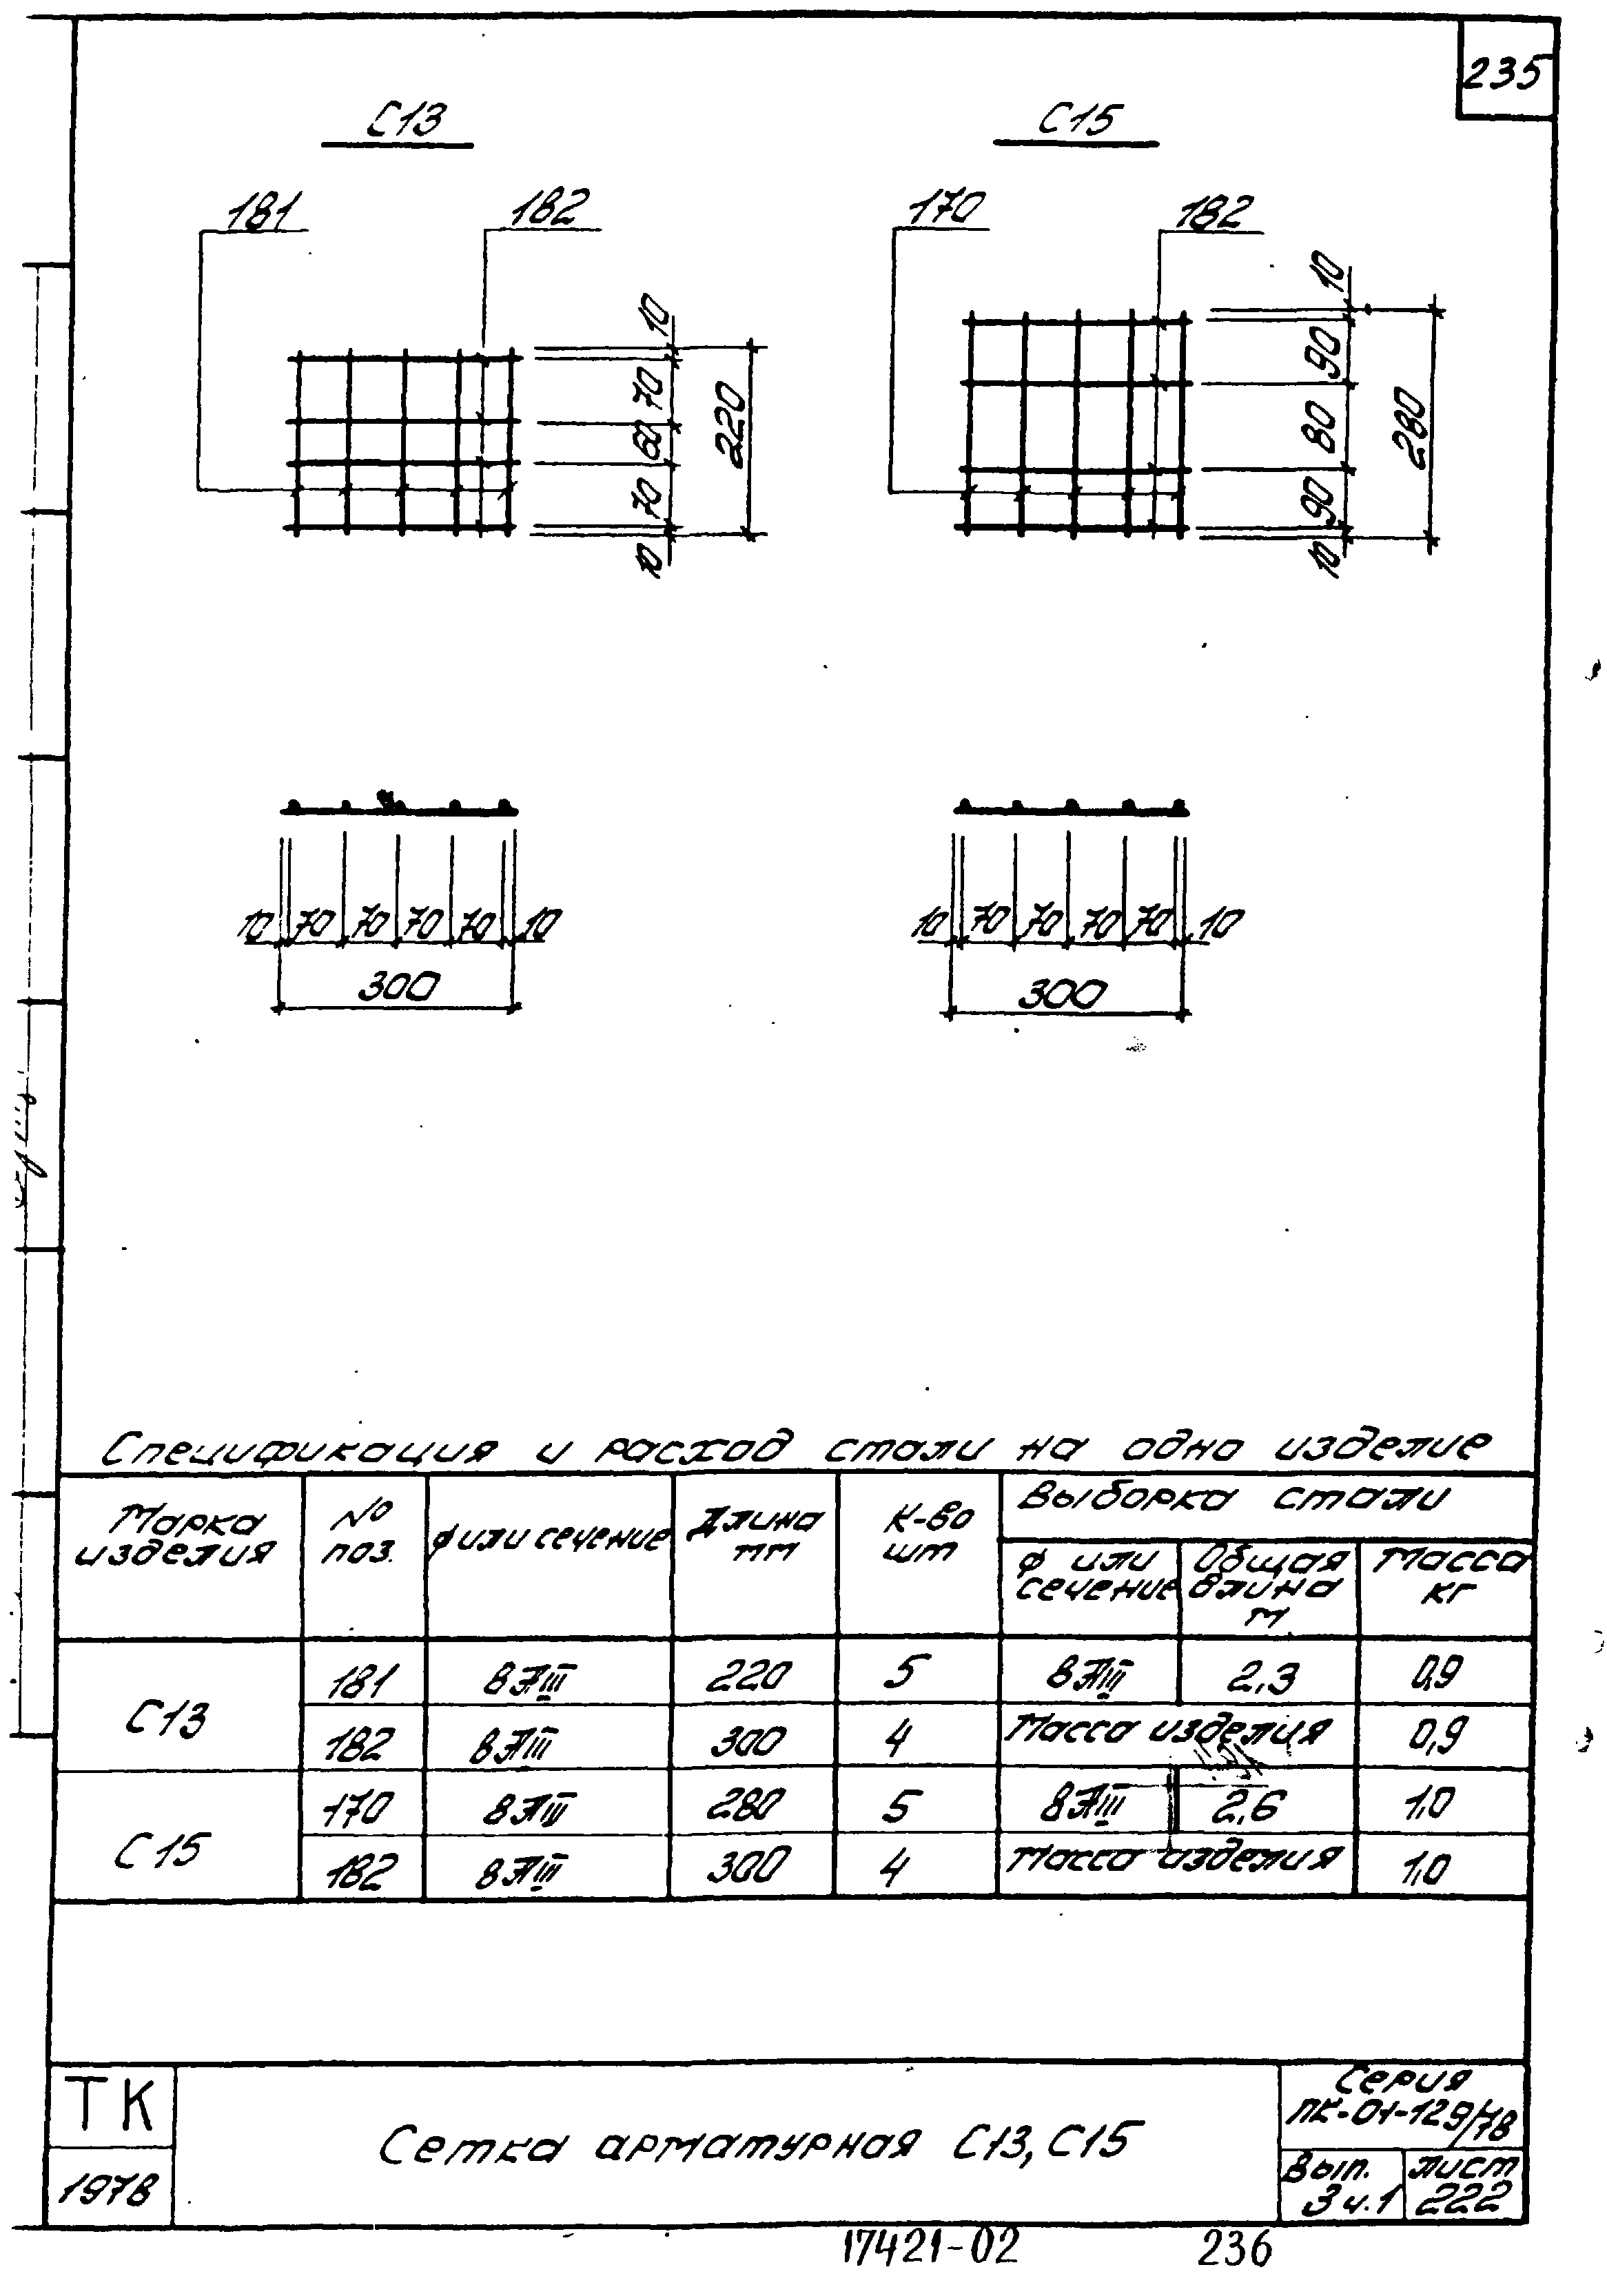 235
С13
С15
181
182
170
182
10
70
60
70
10
220
10
90
80
90
10
280
10 70 70 70 70 10
300
10 70 70 70 70 10
300
Спецификация и расход стали на одно изделие
Марка изделия
№ поз.
ф или сечение
Длина мм
К-во шт
Выборка стали
ф или сечение
Общая длина м
Масса кг
С13
181 8АIII 220 5 8АIII 2,3 0,9
182 8АIII 300 4 Масса изделия 0,9
С15
170 8АIII 280 5 8АIII 2,6 1,0
182 8АIII 300 4 Масса изделия 1,0
ТК
1978
Сетка арматурная С13, С15
Серия
ПК-01-129/78
Вып.
3 ч.1
лист
222
17421-02 236